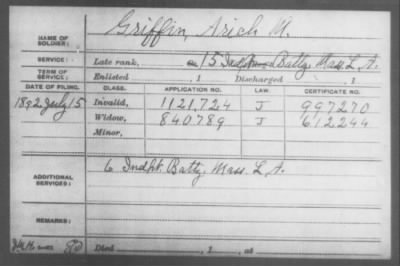 NAME OF SOLDIER: Griffin, Arich M.
SERVICE: Late rank, 15 Indpt Batty, Mass. L. A.
TERM OF SERVICE: Enlisted , 1 Discharged , 1
DATE OF FILING. CLASS. APPLICATION NO. LAW. CERTIFICATE NO.
1892 July 15 Invalid, 1121,724 J 997270
Widow, 840789 J 612244
Minor,
ADDITIONAL SERVICES: 6 Indpt. Batty, Mass. L. A.
REMARKS:
Died , 1 , at